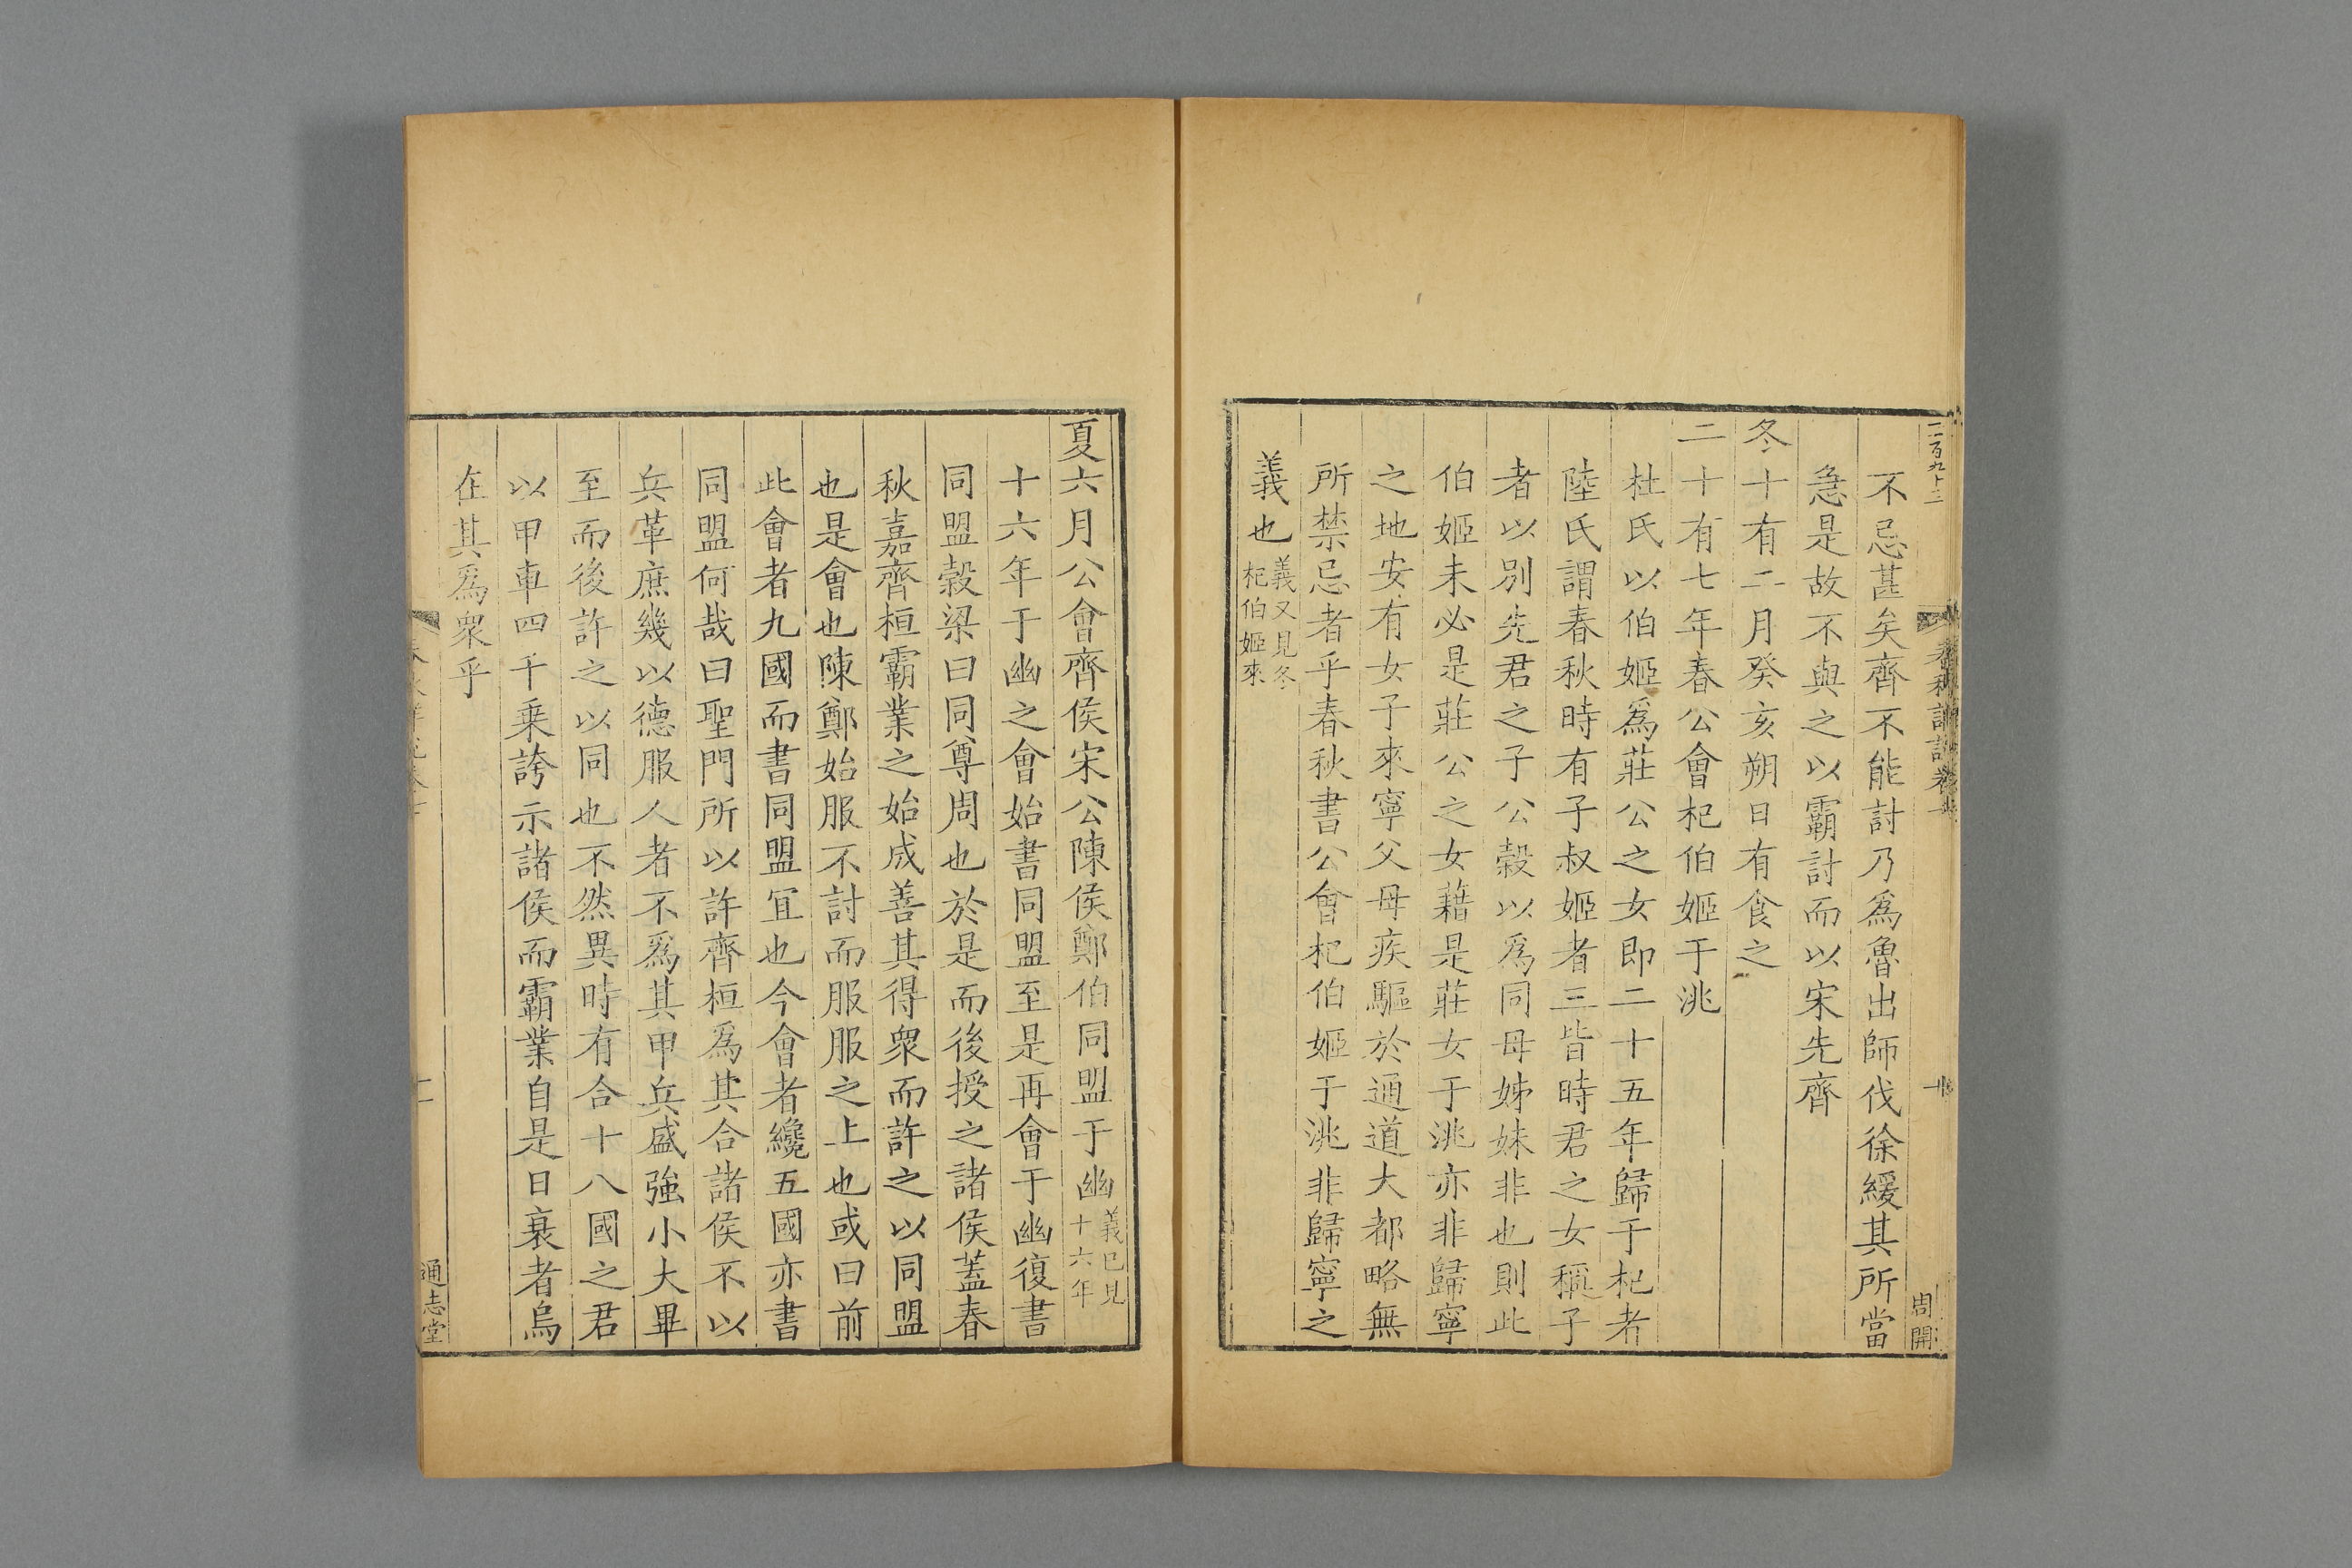 二百九十三
周開
不忌甚矣齊不能討乃爲魯出師伐徐緩其所當
急是故不與之以霸討而以宋先齊
冬十有二月癸亥朔日有食之
二十有七年春公會杞伯姬于洮
杜氏以伯姬爲莊公之女即二十五年歸于杞者
陸氏謂春秋時有子叔姬者三皆時君之女稱子
者以別先君之子公穀以爲同母姊妹非也則此
伯姬未必是莊公之女藉是莊女于洮亦非歸寧
之地安有女子來寧父母疾驅於通道大都略無
所禁忌者乎春秋書公會杞伯姬于洮非歸寧之
義也義又見冬
杞伯姬來
夏六月公會齊侯宋公陳侯鄭伯同盟于幽義已見
十六年
十六年于幽之會始書同盟至是再會于幽復書
同盟穀梁曰同尊周也於是而後授之諸侯蓋春
秋嘉齊桓霸業之始成善其得衆而許之以同盟
也是會也陳鄭始服不討而服服之上也或曰前
此會者九國而書同盟宜也今會者纔五國亦書
同盟何哉曰聖門所以許齊桓爲其合諸侯不以
兵革庶幾以德服人者不爲其甲兵盛強小大畢
至而後許之以同也不然異時有合十八國之君
以甲車四千乘誇示諸侯而霸業自是日衰者烏
在其爲衆乎
通志堂